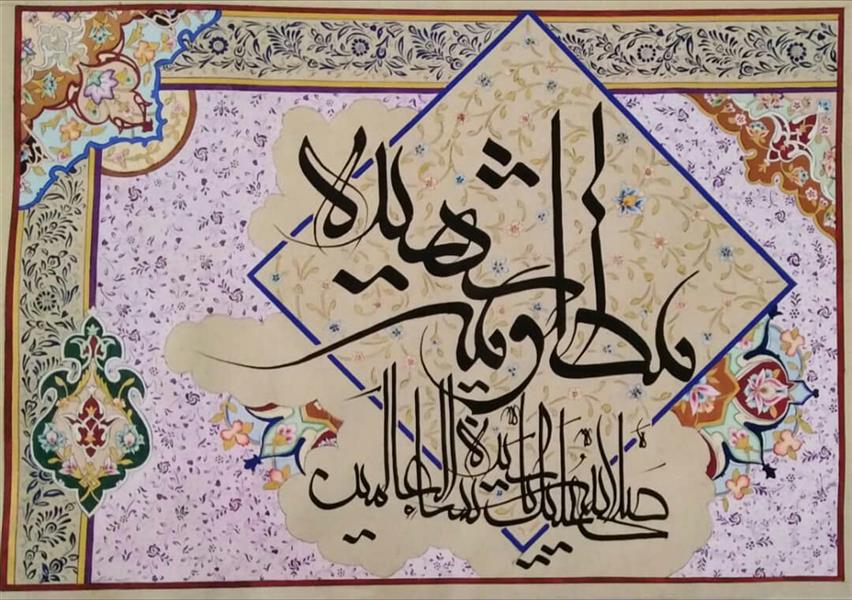 مظلومه الشهیده
صلی الله علیک یا سیدة نساء العالمین